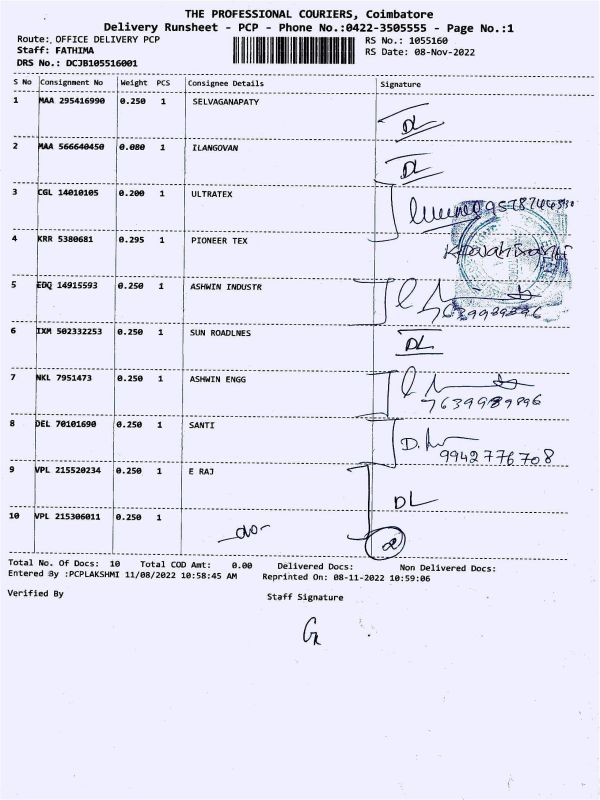 THE PROFESSIONAL COURIERS, Coimbatore
Delivery Runsheet - PCP - Phone No.:0422-3505555 - Page No.:1
Route: OFFICE DELIVERY PCP RS No.: 1055160
Staff: FATHIMA RS Date: 08-Nov-2022
DRS No.: DCJB105516001
S No Consignment No Weight PCS Consignee Details Signature
1 MAA 295416990 0.250 1 SELVAGANAPATY
DL
2 MAA 566640450 0.080 1 ILANGOVAN
DL
3 CGL 14010105 0.200 1 ULTRATEX
4 KRR 5380681 0.295 1 PIONEER TEX
5 EDQ 14915593 0.250 1 ASHWIN INDUSTR
7639989896
6 IXM 502332253 0.250 1 SUN ROADLNES
DL
7 NKL 7951473 0.250 1 ASHWIN ENGG
7639989896
8 DEL 70101690 0.250 1 SANTI
9942776708
9 VPL 215520234 0.250 1 E RAJ
DL
10 VPL 215306011 0.250 1 -do-
2
Total No. Of Docs: 10 Total COD Amt: 0.00 Delivered Docs: Non Delivered Docs:
Entered By :PCPLAKSHMI 11/08/2022 10:58:45 AM Reprinted On: 08-11-2022 10:59:06
Verified By Staff Signature